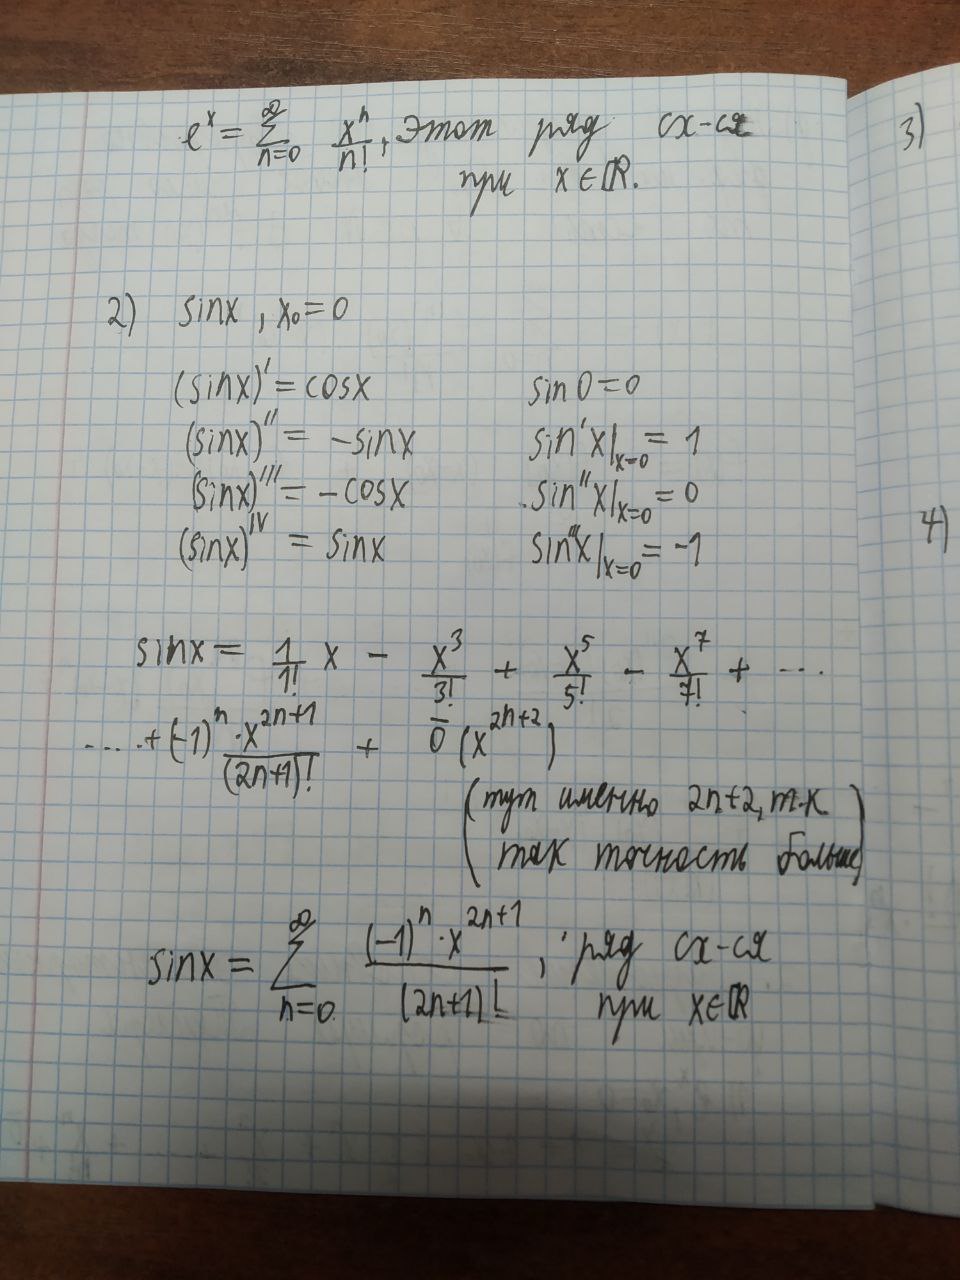 e^x = ∑_{n=0}^{∞} x^n/n!, Этот ряд сх-ся
при x∈ℝ.
2) sinx, x₀=0
(sinx)' = cosx sin0=0
(sinx)'' = -sinx sin'x|_{x=0} = 1
(sinx)''' = -cosx sin''x|_{x=0} = 0
(sinx)^{IV} = sinx sin'''x|_{x=0} = -1
sinx = 1/1! x - x^3/3! + x^5/5! - x^7/7! + ...
.... + (-1)^n·x^{2n+1}/(2n+1)! + o̅(x^{2n+2})
(тут именно 2n+2, т.к
так точность больше)
sinx = ∑_{n=0}^{∞} (-1)^n·x^{2n+1}/(2n+1)!, ряд сх-ся
при x∈ℝ
3)
4)